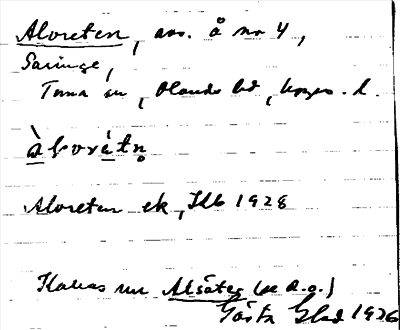 Aloreten, avs. å nr 4,
Saringe,
Tuna sn, Olands hd, Upps. l.
àlorètn̥
Aloreten ek, JLb 1928
Kallas nu Alsäter (se d.o.)
Gösta Glad 1936